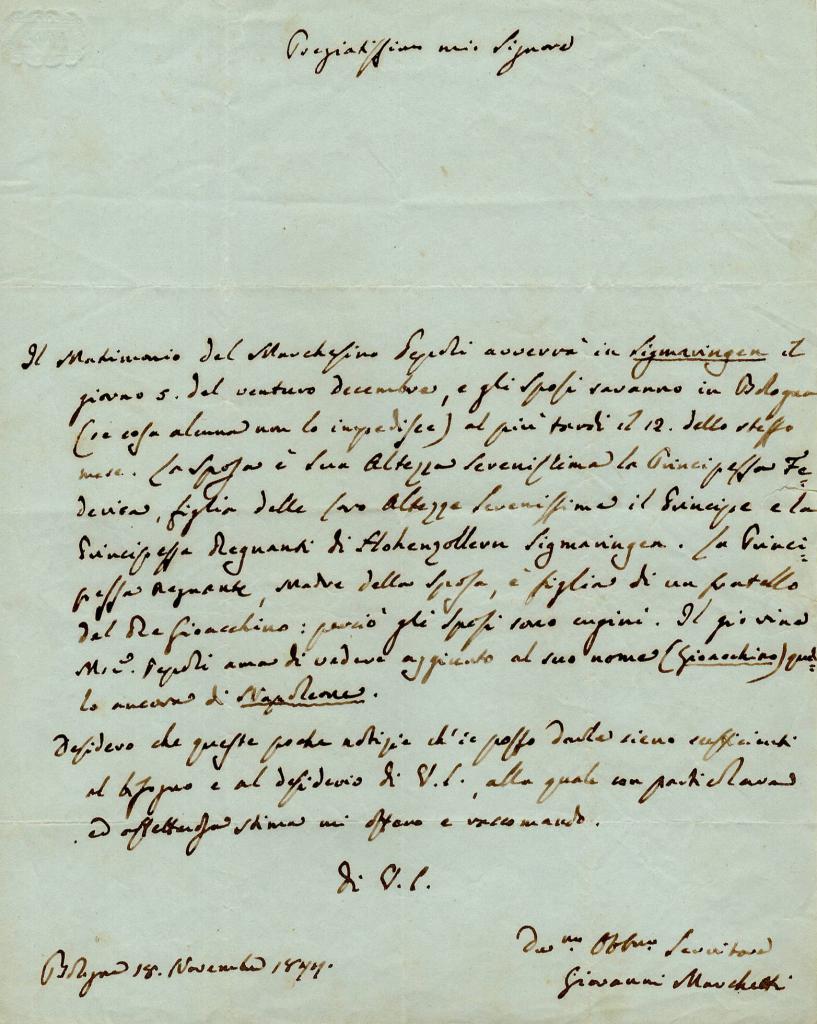 Pregiatissimo mio Signore
Il Matrimonio del Marchesino Pepoli avverrà in Sigmaringen il
giorno 5. del venturo Decembre, e gli Sposi saranno in Bologna
(se cosa alcuna non lo impedisce) al più tardi il 12. dello stesso
mese. La Sposa è Sua Altezza Serenissima la Principessa Fe=
derica, figlia delle loro Altezze Serenissime il Principe e la
Principessa Regnanti di Hohenzollern Sigmaringen. La Princi=
pessa Regnante, Madre della Sposa, è figlia di un fratello
del Re Gioacchino: perciò gli Sposi sono cugini. Il giovine
M.se Pepoli ama di vedere aggiunto al suo nome (Gioacchino) quel=
lo ancora di Napoleone.
Desidero che queste poche notizie ch'io posso darle sieno sufficienti
al bisogno e al desiderio di V.S., alla quale con particolare
ed affettuosa stima mi offero e raccomando.
Di V.S.
Bologna 18. Novembre 1844.
Dev.mo Obb.mo Servitore
Giovanni Marchetti